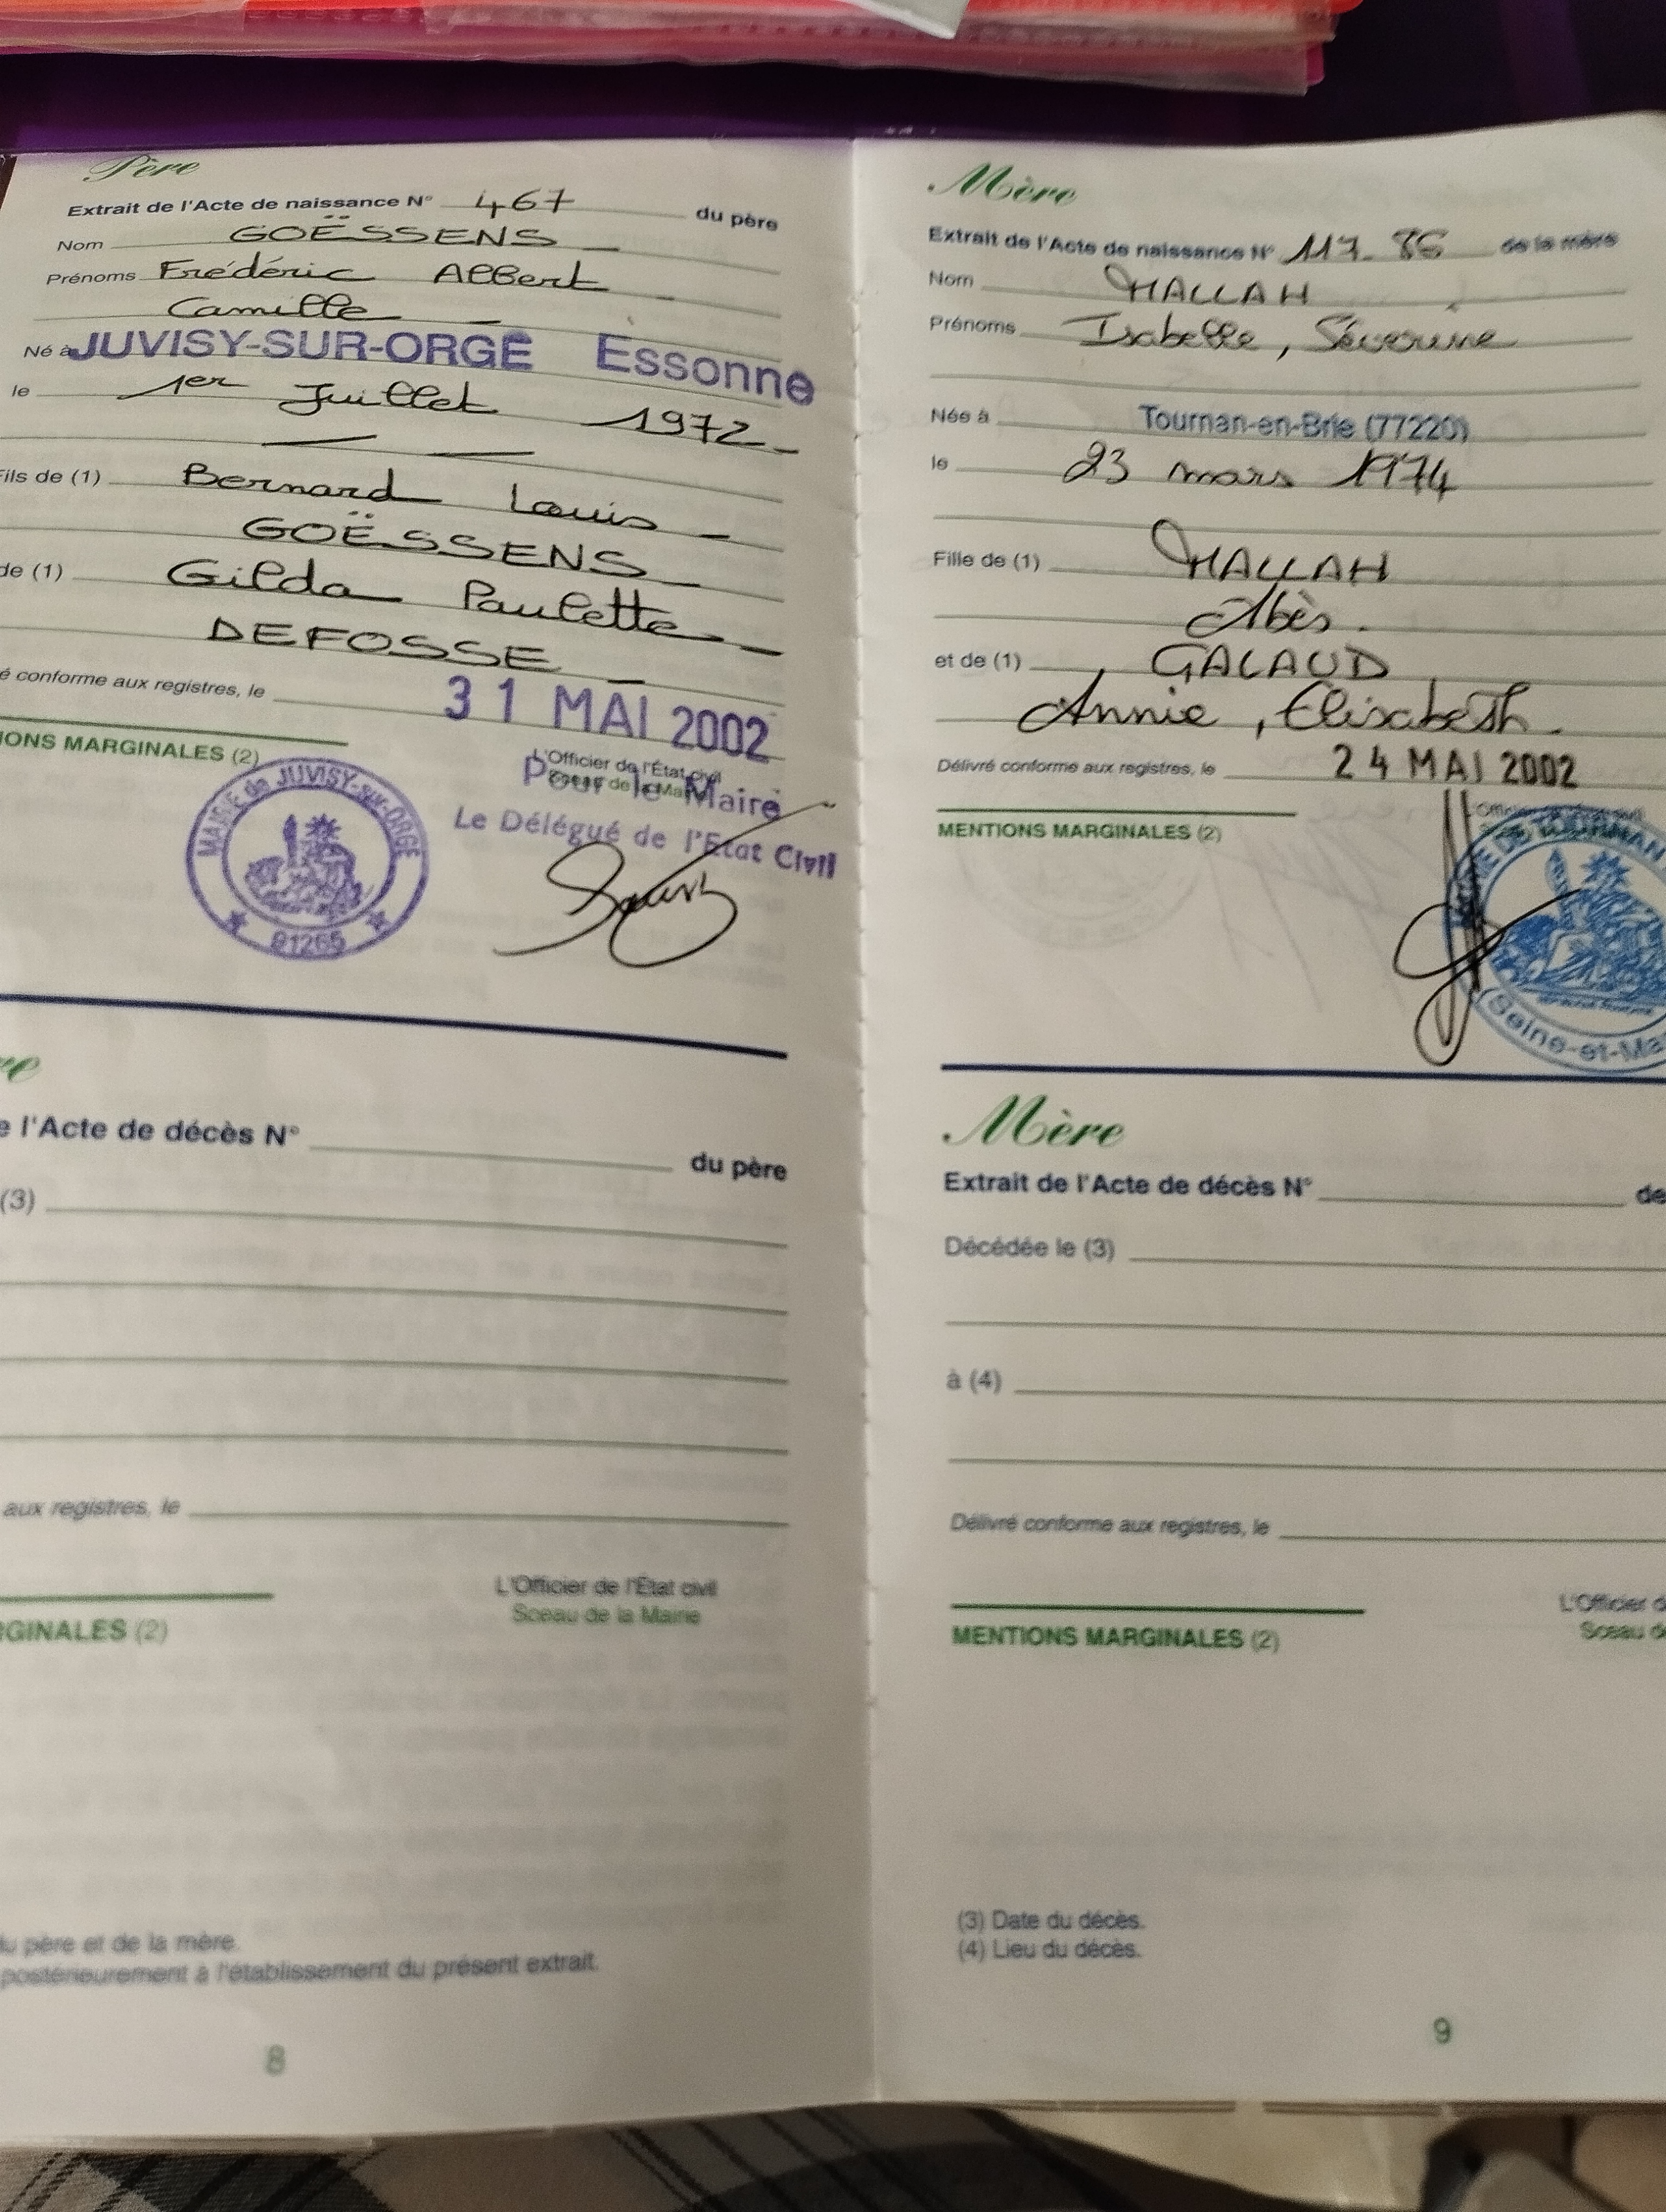 Père
Extrait de l'Acte de naissance N° 467 du père
Nom GOËSSENS
Prénoms Frédéric Albert
Camille
Né à JUVISY-SUR-ORGE Essonne
le 1er Juillet 1972
Fils de (1) Bernard Louis
GOËSSENS
de (1) Gilda Paulette
DEFOSSE
é conforme aux registres, le 31 MAI 2002
IONS MARGINALES (2)
L'Officier de l'État civil
Sceau de la Mairie
Pour le Maire
Le Délégué de l'Etat Civil
MAIRIE de JUVISY-sur-ORGE
91265
re
e l'Acte de décès N° du père
(3)
aux registres, le
L'Officier de l'État civil
Sceau de la Mairie
RGINALES (2)
du père et de la mère.
postérieurement à l'établissement du présent extrait.
8
Mère
Extrait de l'Acte de naissance N° 117.86 de la mère
Nom MALLAH
Prénoms Isabelle, Séverine
Née à Tournan-en-Brie (77220)
le 23 mars 1974
Fille de (1) MALLAH
Abès.
et de (1) GALAUD
Annie, Elisabeth.
Délivré conforme aux registres, le 24 MAI 2002
MENTIONS MARGINALES (2)
L'Officier de l'État civil
Seine-et-Ma
Mère
Extrait de l'Acte de décès N° de
Décédée le (3)
à (4)
Délivré conforme aux registres, le
L'Officier d
Sceau de
MENTIONS MARGINALES (2)
(3) Date du décès.
(4) Lieu du décès.
9